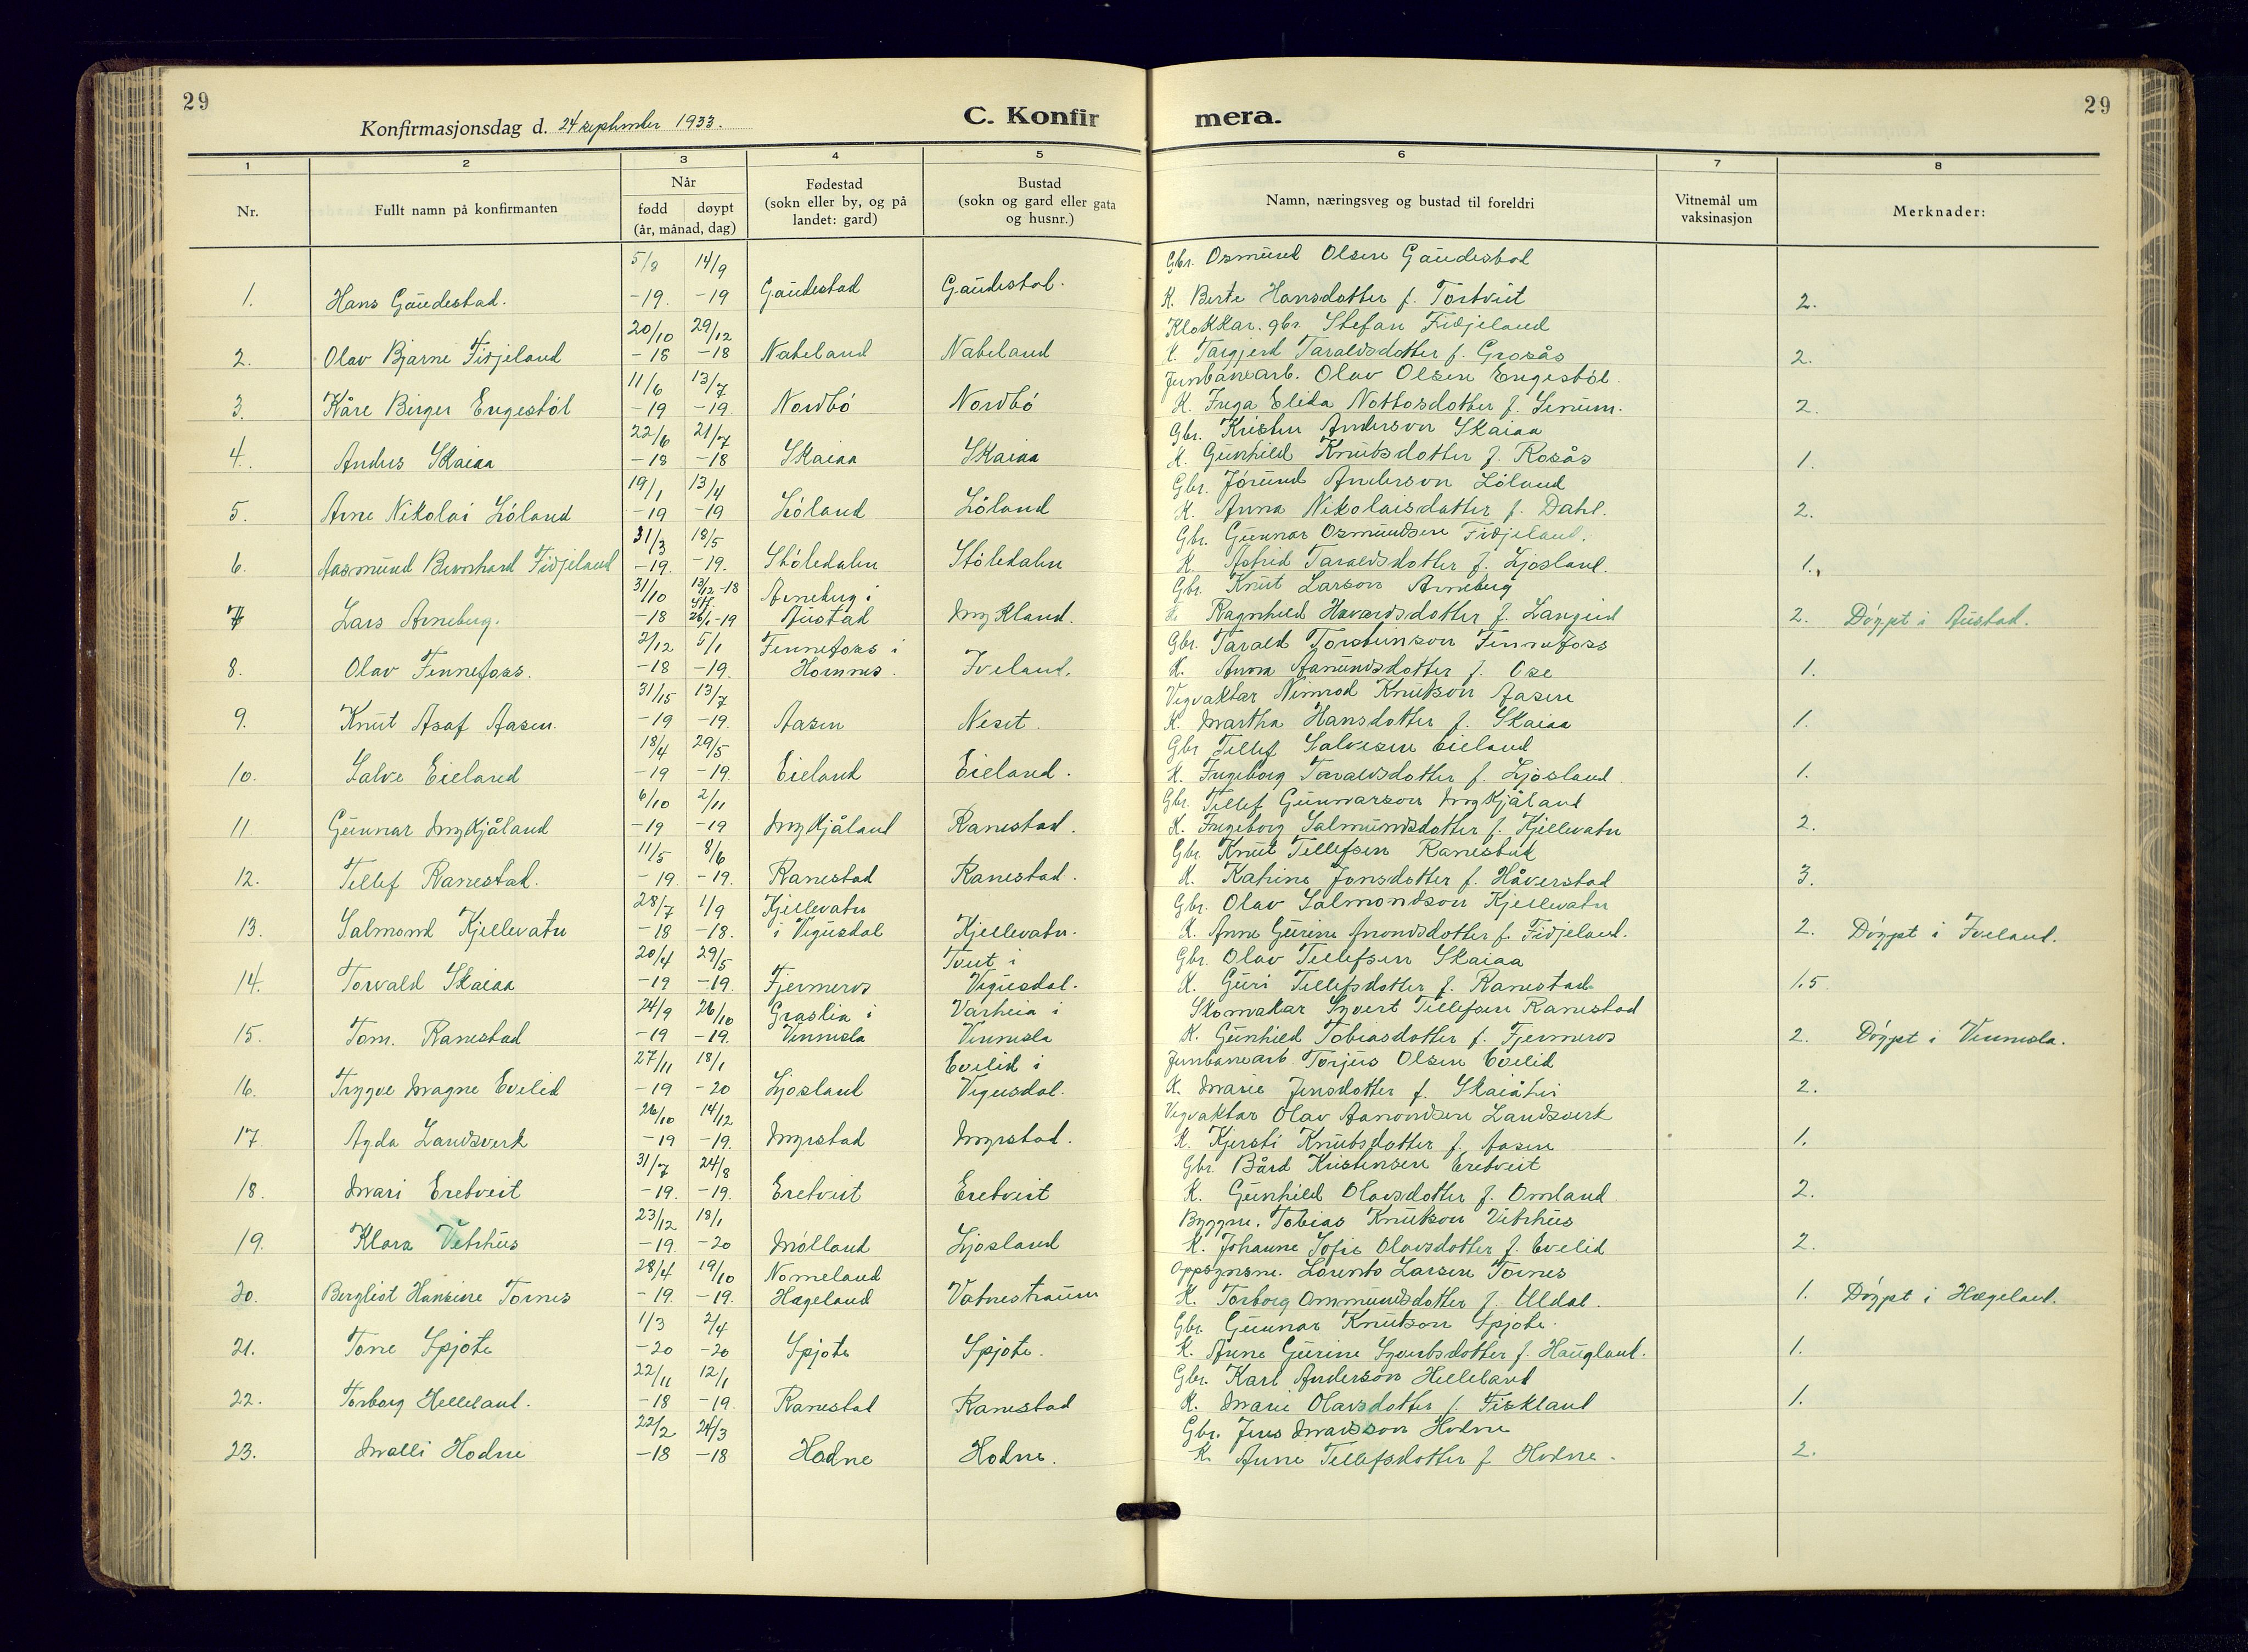 29
Konfirmasjonsdag d. 24 september 1933.
C. Konfirmera.
29
1 2 3 4 5 6 7 8
Nr.
Fullt namn på konfirmanten
Når
fødd døypt
(år, månad, dag)
Fødestad
(sokn eller by, og på
landet: gard)
Bustad
(sokn og gard eller gata
og husnr.)
Namn, næringsveg og bustad til foreldri
Vitnemål um
vaksinasjon
Merknader:
5/8 14/9 Gbr. Osmund Olsen Gaudestad
1. Hans Gaudestad. -19. -19 Gaudestad Gaudestad. K. Berte Hansdotter f. Tortveit 2.
20/10 29/12 Klokkar. gbr. Stefan Fidjeland
2. Olav Bjarne Fidjeland -18 -18 Nateland Nateland K. Targjerd Taraldsdotter f. Grosås 2.
11/6 13/7 Jernbanearb. Olav Olsen Engestøl.
3. Kåre Birger Engestøl -19 -19. Nordbø Nordbø K. Inga Elida Nottosdotter f. Senum. 2.
22/6 21/7 Gbr. Kristen Anderson Skaiaa
4. Anders Skaiaa -18 -18 Skaiaa Skaiaa K. Gunhild Knutsdotter f. Rosås 1.
19/1 13/4 Gbr. Jørund Anderson Løland
5. Arne Nikolai Løland -19 -19 Løland Løland K. Anna Nikolaisdotter f. Dahl. 2.
31/3 18/5 Gbr. Gunnar Osmundsen Fidjeland.
6. Aasmund Bernhard Fidjeland -19. -19. Støledalen Støledalen K. Astrid Taraldsdotter f. Ljosland. 1.
31/10 13/12-18 Arneberg i Gbr. Knut Larson Arneberg
7 Lars Arneberg. -18 Stf. 26/1-19 Austad Mykland. K. Ragnhild Havardsdotter f. Langeid 2. Døypt i Austad.
2/12 5/1 Fennefoss i Gbr. Tarald Torsteinson Fennefoss
8. Olav Fennefoss. -18 -19. Hornnes. Iveland. K. Anna Aanundsdotter f. Ose 1.
31/15 13/7 Vegvaktar Nimrod Knutson Aasen
9. Knut Asaf Aasen. -19 -19. Aasen Neset. K. Martha Hansdotter f. Skaiaa 1.
18/4 29/5 Gbr Tellef Salvesen Eieland
10. Salve Eieland -19 -19. Eieland Eieland. K. Ingeborg Taraldsdotter f. Ljosland 1.
6/10 2/11 Gbr. Tellef Gunnarson Mykjåland
11 Gunnar Mykjåland -19 -19 Mykjåland Ranestad. K. Ingeborg Salmundsdotter f. Kjellevatn 2.
11/5 8/6 Gbr. Knut Tellefsen Ranestad
12. Tellef Ranestad. -19. -19. Ranestad Ranestad. K. Katrine Jonsdotter f. Håverstad 3.
28/7 1/9 Kjellevatn Gbr. Olav Salmondson Kjellevatn
13. Salmond Kjellevatn -18 -18. i Vegusdal Kjellevatn. K. Anne Gurine Anondsdotter f. Fidjeland. 2. Døypt i Iveland.
20/4 29/5 Tveit i Gbr. Olav Tellefsen Skaiaa
14. Torvald Skaiaa -19 -19. Fjermeros Vegusdal. K. Guri Tellefsdotter f. Ranestad 1.5
24/9 26/10 Graslia i Varheia i Skomakar Syvert Tellefsen Ranestad
15. Tom. Ranestad -19 -19. Vennesla Vennesla K. Gunhild Tobiasdotter f. Fjermeros 2. Døypt i Vennesla.
27/11 18/1 Evelid i Jernbanearb Torjus Olsen Evelid
16. Trygve Magne Evelid -19 -20 Ljosland Vegusdal. K. Marie Jensdotter f. Skaiåhei 2.
26/10 14/12 Vegvaktar Olav Aanondsen Landsverk
17. Agda Landsverk -19 -19. Myrstad Myrstad. K. Kjersti Knutsdotter f. Aasen 1.
31/7 24/8 Gbr. Bård Kristensen Eretveit
18. Mari Eretveit -19. -19. Eretveit Eretveit K. Gunhild Olavsdotter f. Omland 2.
23/12 18/1 Byggm. Tobias Knutson Vetrhus
19. Klara Vetrhus -19. -20 Mølland Ljosland K. Johanne Sofie Olavsdotter f. Evelid 2.
28/4 19/10 Nomeland Oppsynsm. Lorents Larsen Tornes
20. Bergliot Hansine Tornes -19. -19. Hægeland Vatnestraum K. Torborg Ommundsdotter f. Uldal. 1. Døypt i Hægeland.
1/3 2/4 Gbr. Gunnar Knutson Spjote.
21. Tone Spjote -20 -20 Spjote Spjote. K. Anne Gurine Syvertsdotter f. Haugland. 1.
22/11 12/1 Gbr. Karl Anderson Helleland
22. Torborg Helleland. -18 -19. Ranestad Ranestad K. Marie Olavsdotter f. Fiskland 1.
22/2 24/3 Gbr. Jens Madsson Hodne
23. Malli Hodne -18 -18 Hodne Hodne. K. Anne Tellefsdotter f Hodne. 2.